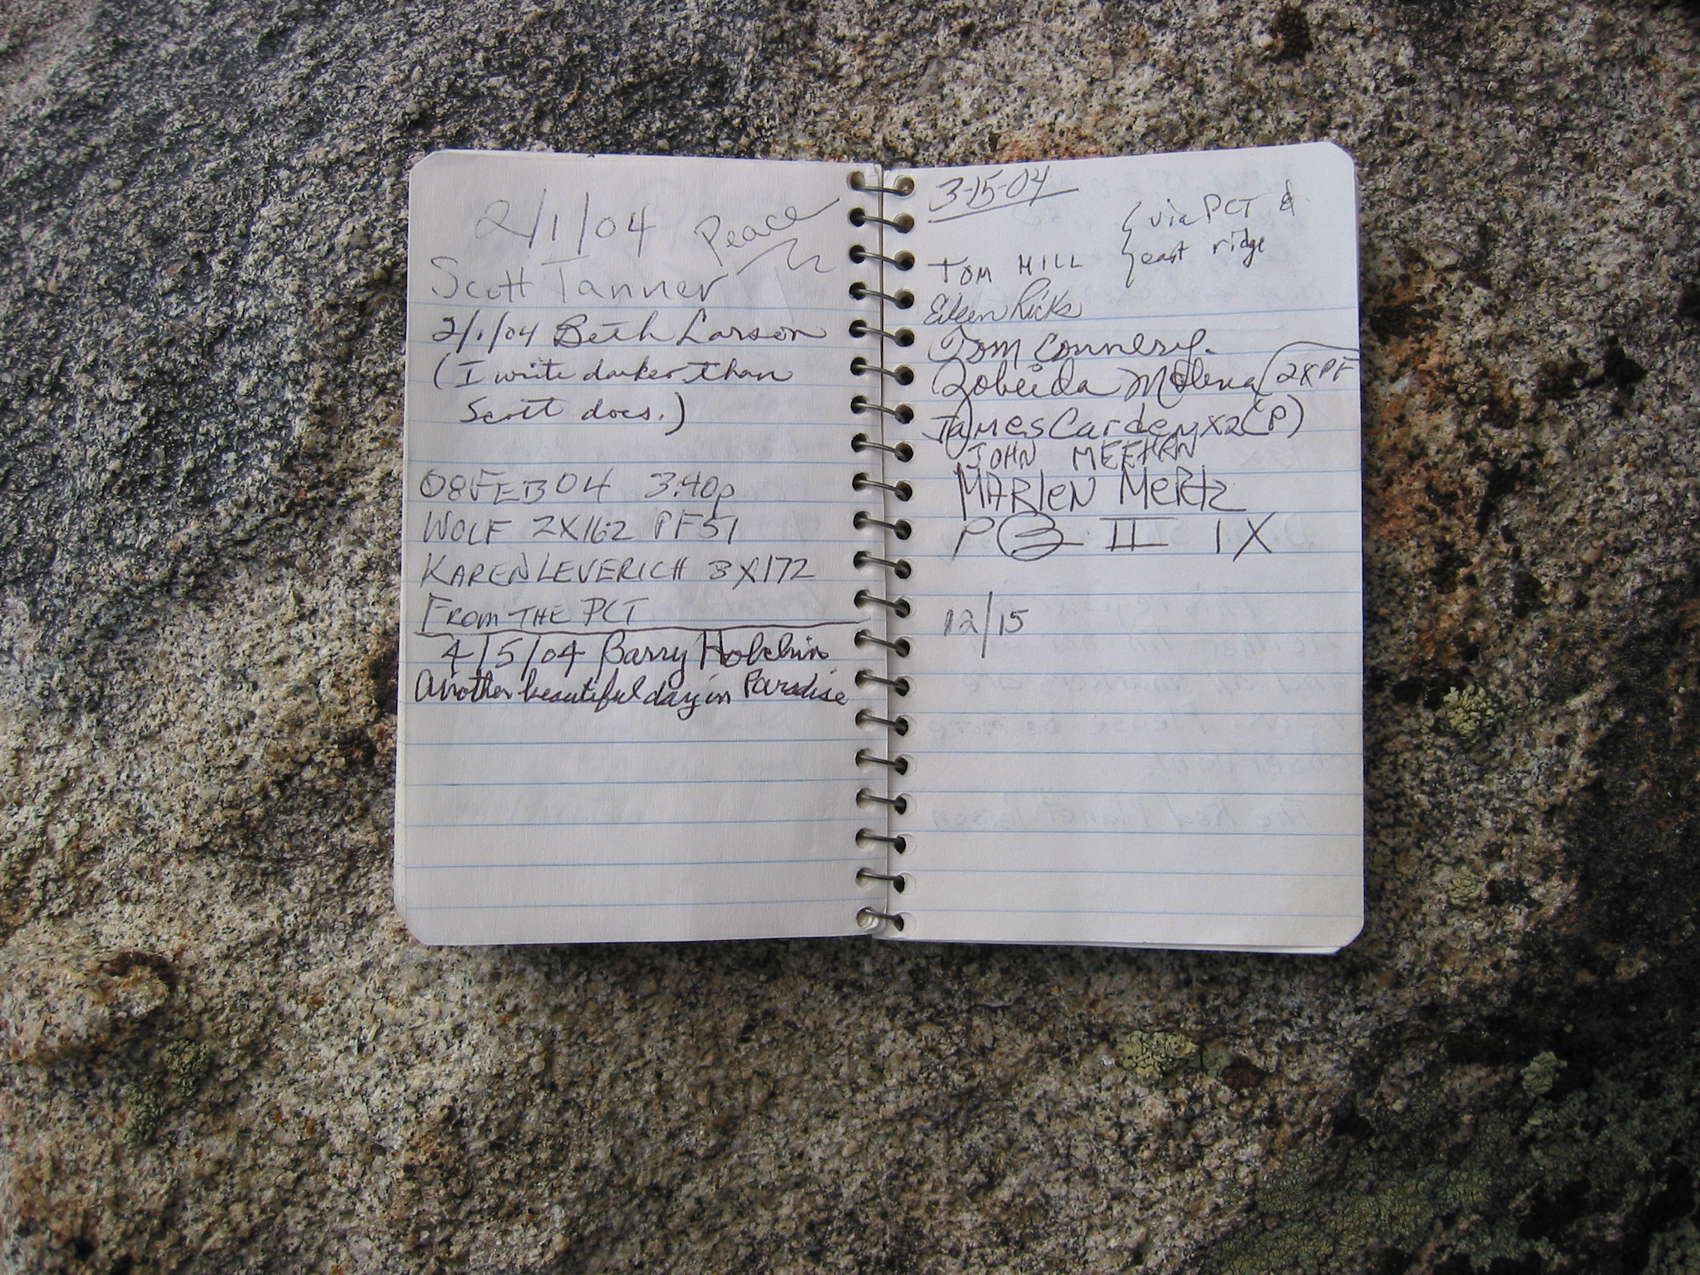 2/1/04 Peace
Scott Tanner
2/1/04 Beth Larson
(I write darker than
Scott does.)
08FEB04 3:40p
WOLF 2X162 PF51
KAREN LEVERICH 3X172
FROM THE PCT
4/5/04 Barry
Another beautiful day in Paradise
3-15-04
via PCT &
TOM HILL east ridge
Eileen Ricks
Tom Connery.
Zobeida Molina (2XPF
James Carden X2(P)
JOHN MEEHAN
MARlEN MeRtz
II 1X
12/15